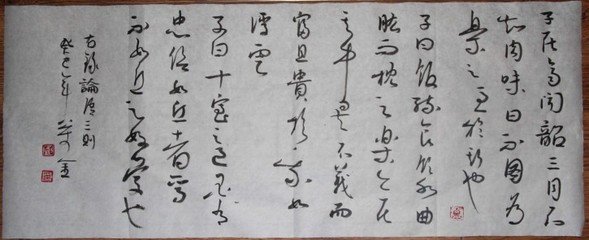 子在齊闻韶三月不
知肉味曰不图为
樂之至於斯也
子曰飯疏食饮水曲
肱而枕之樂亦在
其中矣不義而
富且貴於我如
浮雲
子曰十室之邑必有
忠信如丘者焉
不如丘之好學也
右録論语三则
癸巳年